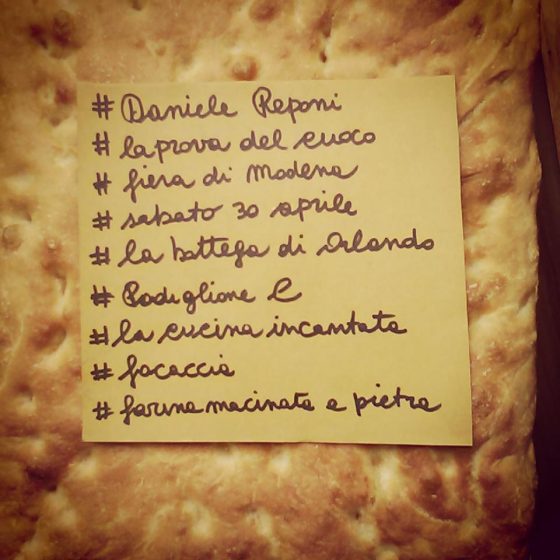 # Daniele Reponi
# la prova del cuoco
# fiera di Modena
# sabato 30 aprile
# la bottega di Orlando
# Padiglione C
# la cucina incantata
# focaccia
# farina macinata a pietra